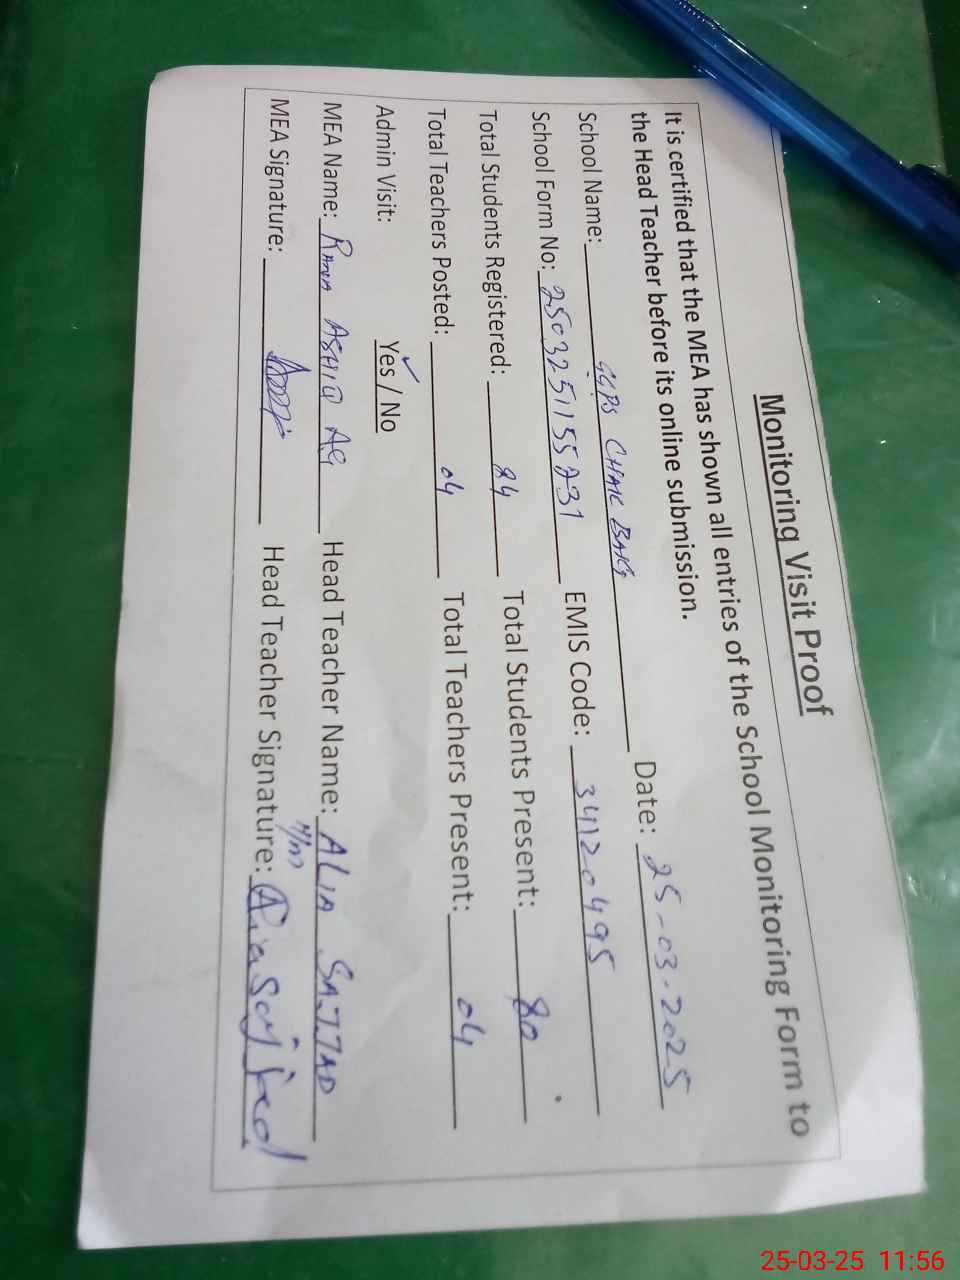 Monitoring Visit Proof
It is certified that the MEA has shown all entries of the School Monitoring Form to
the Head Teacher before its online submission.
School Name: GGPS CHAK BAKG Date: 25-03-2025
School Form No: 2503251155231 EMIS Code: 34120495
Total Students Registered: 84 Total Students Present: 80
Total Teachers Posted: 04 Total Teachers Present: 04
Admin Visit: Yes / No
MEA Name: RANA ASHIQ Ali Head Teacher Name: ALIA SAJJAD
MEA Signature: Head Teacher Signature:
25-03-25 11:56